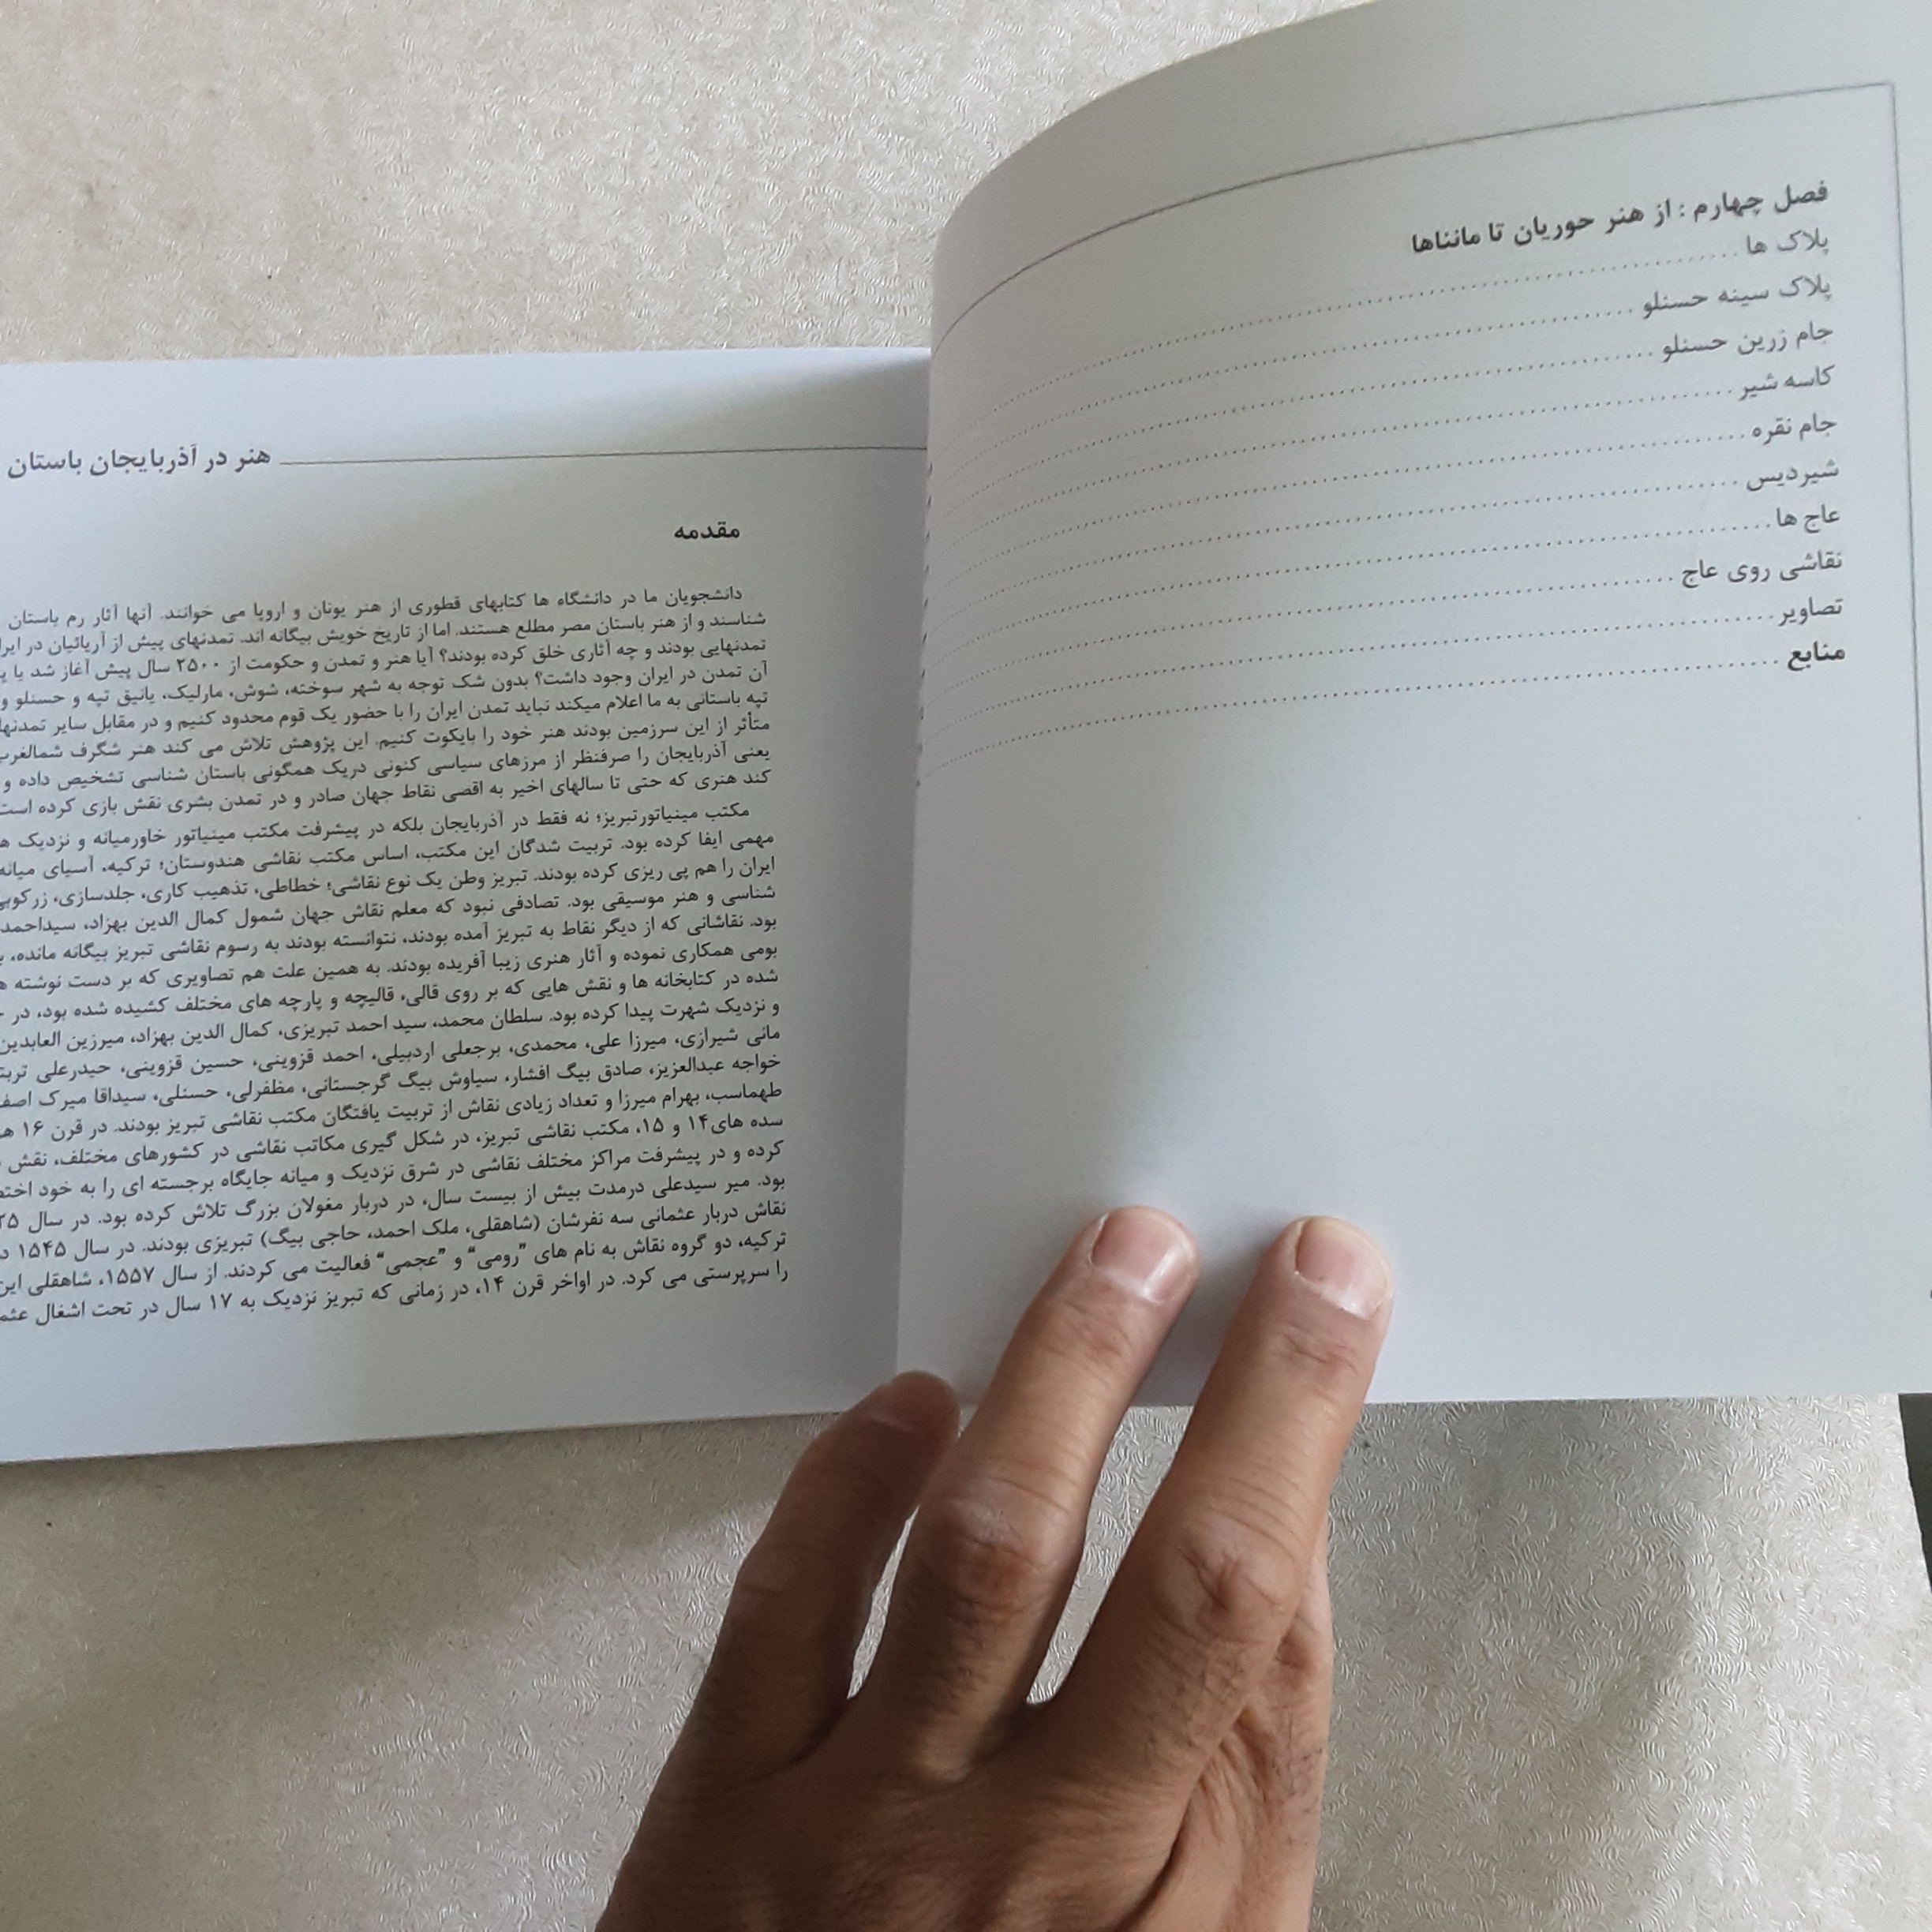 فصل چهارم : از هنر حوریان تا مانناها
پلاک ها
پلاک سینه حسنلو
جام زرین حسنلو
کاسه شیر
جام نقره
شیردیس
عاج ها
نقاشی روی عاج
تصاویر
منابع
هنر در آذربایجان باستان
مقدمه
دانشجویان ما در دانشگاه ها کتابهای قطوری از هنر یونان و اروپا می خوانند. آنها آثار رم باستان
شناسند و از هنر باستان مصر مطلع هستند. اما از تاریخ خویش بیگانه اند. تمدنهای پیش از آریائیان در
تمدنهایی بودند و چه آثاری خلق کرده بودند؟ آیا هنر و تمدن و حکومت از ۲۵۰۰ سال پیش آغاز شد یا
آن تمدن در ایران وجود داشت؟ بدون شک توجه به شهر سوخته، شوش، مارلیک، یانیق تپه و حسنلو و
تپه باستانی به ما اعلام میکند نباید تمدن ایران را با حضور یک قوم محدود کنیم و در مقابل سایر
متأثر از این سرزمین بودند هنر خود را بایکوت کنیم. این پژوهش تلاش می کند هنر شگرف
یعنی آذربایجان را صرفنظر از مرزهای سیاسی کنونی دریک همگونی باستان شناسی تشخیص داده و
کند هنری که حتی تا سالهای اخیر به اقصی نقاط جهان صادر و در تمدن بشری نقش بازی کرده است
مکتب مینیاتورتبریز؛ نه فقط در آذربایجان بلکه در پیشرفت مکتب مینیاتور خاورمیانه و نزدیک
مهمی ایفا کرده بود. تربیت شدگان این مکتب، اساس مکتب نقاشی هندوستان؛ ترکیه، آسیای میانه
ایران را هم پی ریزی کرده بودند. تبریز وطن یک نوع نقاشی؛ خطاطی، تذهیب کاری، جلدسازی،
شناسی و هنر موسیقی بود. تصادفی نبود که معلم نقاش جهان شمول کمال الدین بهزاد، سیداحمد
بود. نقاشانی که از دیگر نقاط به تبریز آمده بودند، نتوانسته بودند به رسوم نقاشی تبریز بیگانه مانده،
بومی همکاری نموده و آثار هنری زیبا آفریده بودند. به همین علت هم تصاویری که بر دست نوشته
شده در کتابخانه ها و نقش هایی که بر روی قالی، قالیچه و پارچه های مختلف کشیده شده بود، در
و نزدیک شهرت پیدا کرده بود. سلطان محمد، سید احمد تبریزی، کمال الدین بهزاد، میرزین العابدین
مانی شیرازی، میرزا علی، محمدی، برجعلی اردبیلی، احمد قزوینی، حسین قزوینی، حیدرعلی
خواجه عبدالعزیز، صادق بیگ افشار، سیاوش بیگ گرجستانی، مظفرلی، حسنلی، سیداقا میرک
طهماسب، بهرام میرزا و تعداد زیادی نقاش از تربیت یافتگان مکتب نقاشی تبریز بودند. در قرن ۱۶
سده های۱۴ و ۱۵، مکتب نقاشی تبریز، در شکل گیری مکاتب نقاشی در کشورهای مختلف، نقش
کرده و در پیشرفت مراکز مختلف نقاشی در شرق نزدیک و میانه جایگاه برجسته ای را به خود
بود. میر سیدعلی درمدت بیش از بیست سال، در دربار مغولان بزرگ تلاش کرده بود. در سال
نقاش دربار عثمانی سه نفرشان (شاهقلی، ملک احمد، حاجی بیگ) تبریزی بودند. در سال ۱۵۴۵
ترکیه، دو گروه نقاش به نام های "رومی" و "عجمی" فعالیت می کردند. از سال ۱۵۵۷، شاهقلی این
را سرپرستی می کرد. در اواخر قرن ۱۴، در زمانی که تبریز نزدیک به ۱۷ سال در تحت اشغال